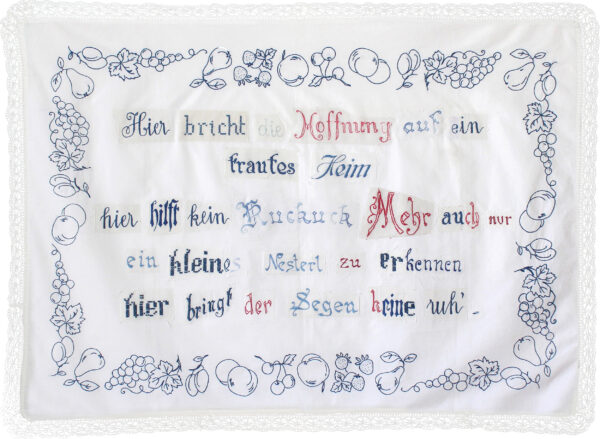 Hier bricht die Hoffnung auf ein
trautes Heim
hier hilft kein Kuckuck Mehr auch nur
ein kleines Nesterl zu erkennen
hier bringt der Segen keine ruh'.